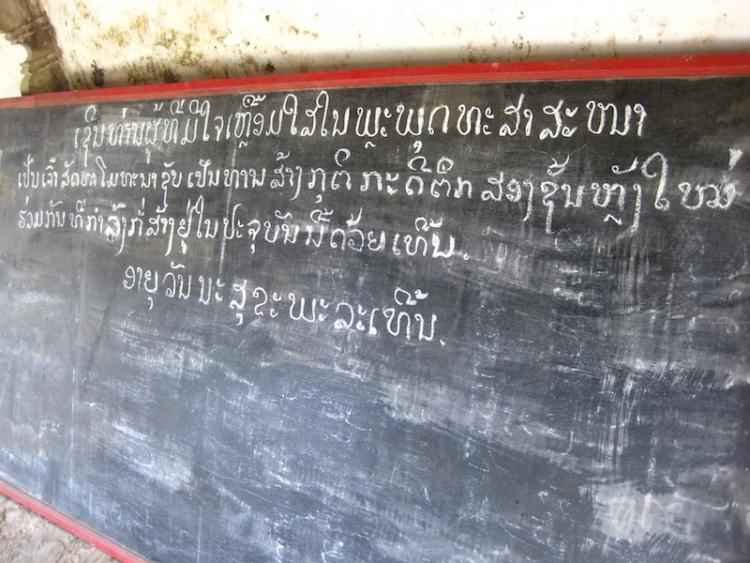 ເຊີນທ່ານຜູ້ທີ່ມີໃຈເຫຼື້ອມໃສໃນພຼະພຸດທະສາສະໜາ
ເປັນເຈົ້າສັດທາໂມທະນາຊັບເປັນທານສ້າງກຸຕິກະດີຕຶກສອງຊັ້ນຫຼັງໃໝ່
ຮ່ວມກັນທີ່ກຳລັງກໍ່ສ້າງຢູ່ໃນປະຈຸບັນນີ້ດ້ວຍເທີ້ນ.
ອາຍຸວັນນະສຸຂະພະລະເທີ້ນ.